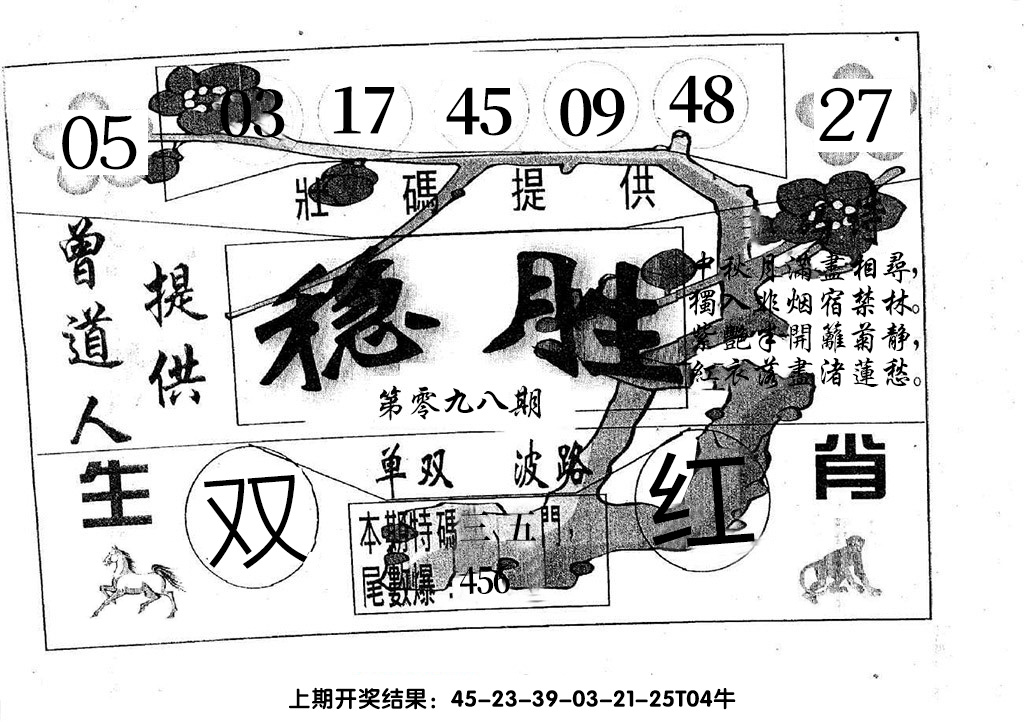 05 03 17 45 09 48 27
壯碼提供
特
曾道人
提供
稳胜
第零九八期
中秋月滿盡相尋，
獨入非烟宿禁林。
紫艷半開籬菊静，
紅衣落盡渚蓮愁。
生肖
单双 波路
双
红
本期特碼三、五門，
尾數爆：456
上期开奖结果：45-23-39-03-21-25T04牛